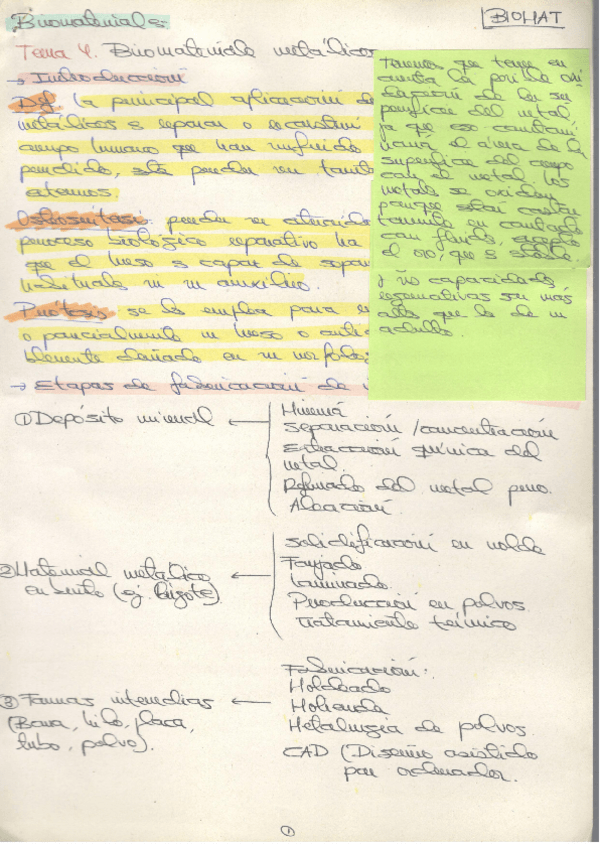 Biomateriales:
BIOMAT
Tema 4. Biomateriales metálicos
→ Introducción
Def la principal aplicación de
metálicos es reparar o reconstruir
cuerpo humano que han
perdido, esta pueden ser tanto
externos.
Osteosíntesis: pueden
proceso biológico reparativo ha
que el hueso es capaz de
habituales ni su auxilio.
Prótesis: se les emplea para
o parcialmente un hueso o
blemente dañado en su morfolog
→ Etapas de fabricación de
Tenemos que tener en
cuenta la
del metal,
ya que eso
el área de la
superficie del cuerpo
con el metal. los
metales se oxidan
porque están
en contacto
con fluido, excepto
el oro, que es estable.
capacidades
son más
altas que la de un
adulto.
① Depósito mineral ←
Minería
Separación / concentración
Extracción química del
metal.
Refinado del metal puro.
Aleación.
② Material metálico
en bruto (ej. lingote). ←
Solidificación en molde
Forjado
Laminado.
Producción en polvos.
Tratamiento térmico
③ Formas intermedias ←
(Barra, hilo, placa,
tubo, polvo).
Fabricación:
Moldeado
Molienda
Metalurgia de polvos.
CAD (Diseño asistido
por ordenador.
1